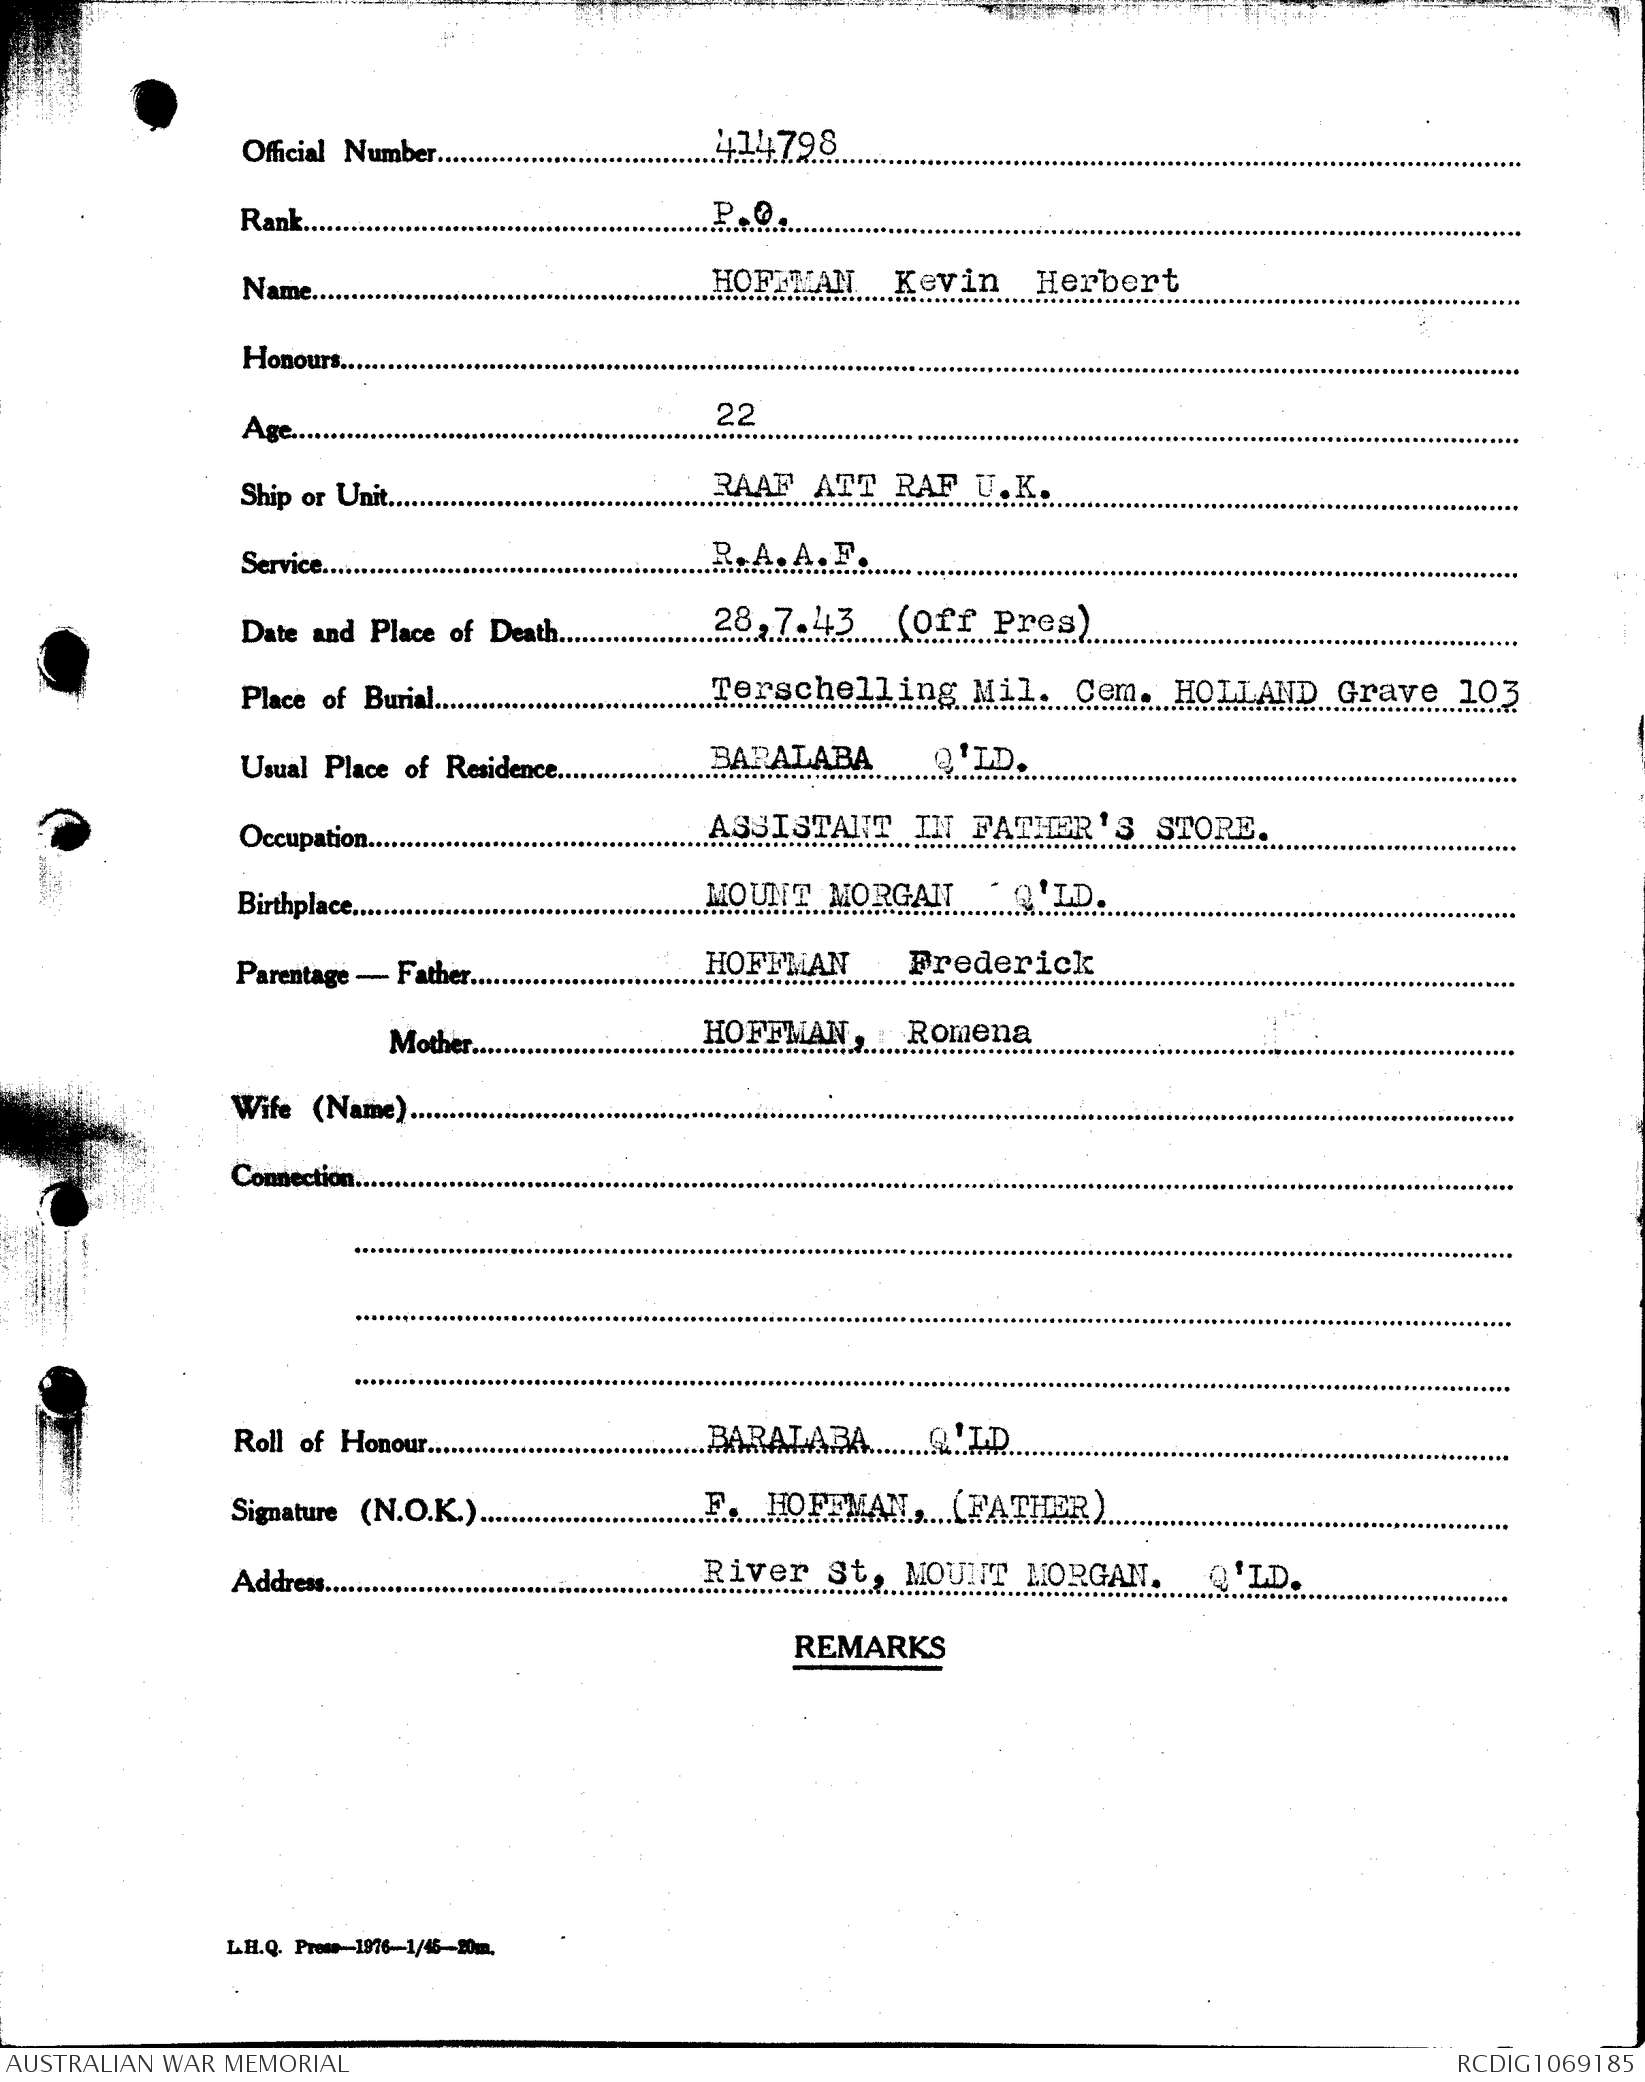 Official Number 414798
Rank P.O.
Name HOFFMAN Kevin Herbert
Honours
Age 22
Ship or Unit RAAF ATT RAF U.K.
Service R.A.A.F.
Date and Place of Death 28,7.43 (Off Pres)
Place of Burial Terschelling Mil. Cem. HOLLAND Grave 103
Usual Place of Residence BARALABA Q'LD.
Occupation ASSISTANT IN FATHER'S STORE.
Birthplace MOUNT MORGAN Q'LD.
Parentage — Father HOFFMAN Frederick
Mother HOFFMAN, Romena
Wife (Name)
Connection
Roll of Honour BARALABA Q'LD
Signature (N.O.K.) F. HOFFMAN, (FATHER)
Address River St, MOUNT MORGAN. Q'LD.
REMARKS
L.H.Q. Press—1976—1/45—20m.
AUSTRALIAN WAR MEMORIAL RCDIG1069185